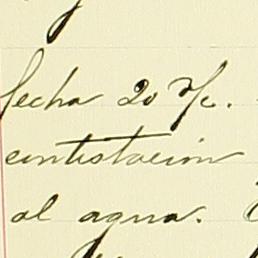 fecha 20 7/c.
contestacion
al agua.